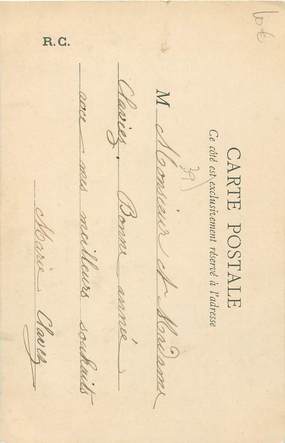 CARTE POSTALE
Ce côté est exclusivement réservé à l'adresse
39
M Monsieur et Madame
Claviez. Bonne année
avec mes meilleurs souhaits
Marie Claviez
R. C.